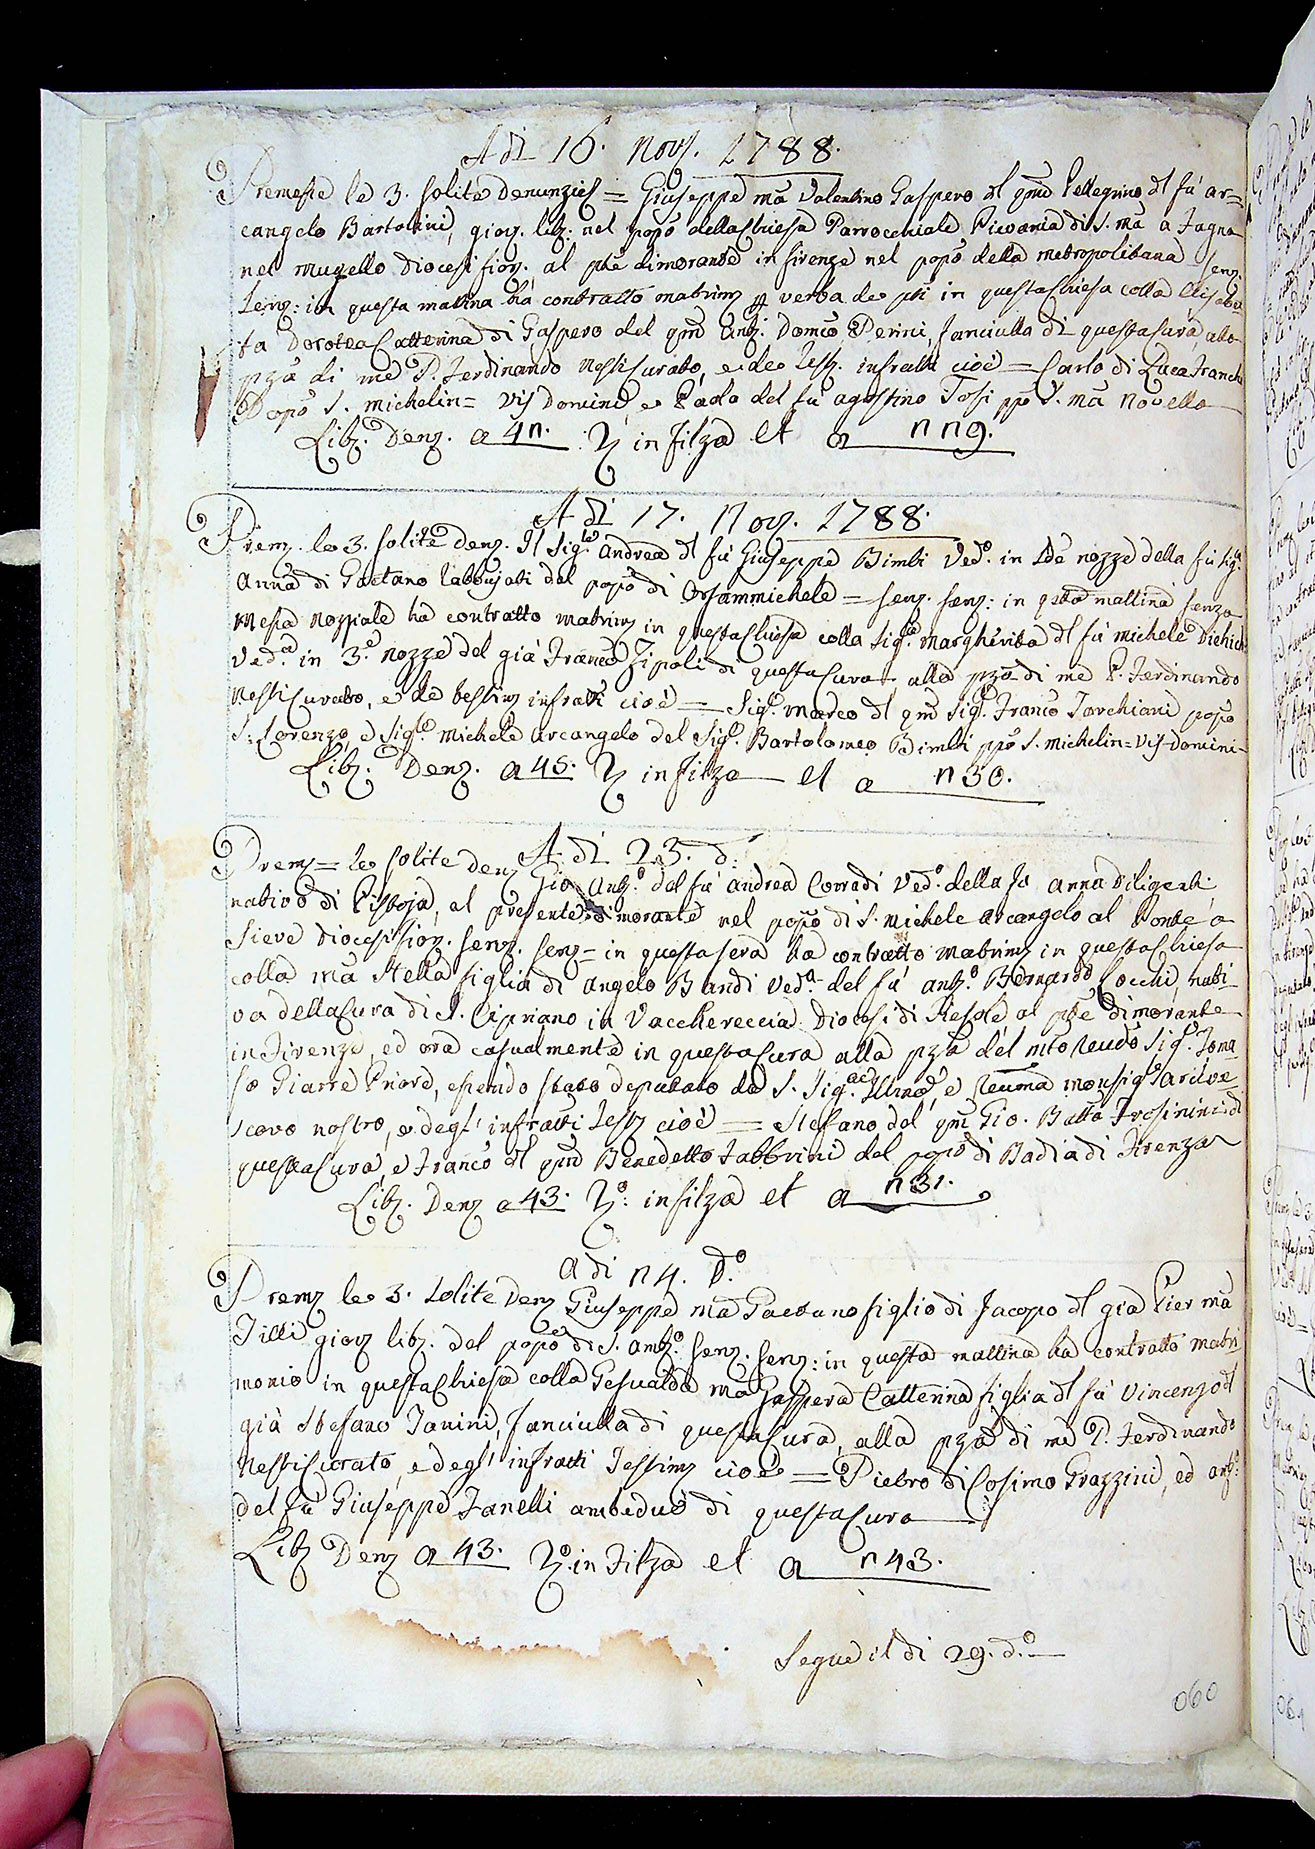 A dì 16. Nov. 1788.
Premesse le 3. solite denunzie = Giuseppe Mã Valentino Gaspero dl qm̃ Pellegrino dl fù Ar=
cangelo Bartolini, giov. lib: nel popõ della Chiesa Parrocchiale Pievania di S. Mã a Fagna
nel Mugello Diocesi fior. al pñte dimorante in Firenze nel popõ della Metropolitana Senz.
Senz: in questa mattina ha contratto matrim p verba de pñti in questa Chiesa colla Elisabet
ta Dorotea Catterina di Gaspero del qm̃ Ant. Domco Perini, fanciulla di questa Cura, alla
pza di me P. Ferdinando Nesti Curato, e de Test. infratti cioè = Carlo di Luca Franchi
Popõ S. Michelin= Visdomini e Paolo del fù Agostino Tosi ppõ S. Mã Novella
Lib. Denz. a 42. in filza et a n 29.
A dì 17. Nov. 1788.
Prem. le 3. solite denz. Il Sig.re Andrea dl fù Giuseppe Bimbi Ved.o in 2.de nozze della fù Sig.
Anna di Gaetano Rabbujati del popõ di Orsammichele = Senz. Senz: in qta mattina senza
Messa nozziale ha contratto matrim in questa Chiesa colla Sig.ra Margherita dl fù Michele
Ved.a in 3.e nozze del già Franco Zipoli di questa Cura alla pza di me P. Ferdinando
Nesti Curato, e de testim infratti cioè = Sig.e Marco dl qm̃ Sig.e Franco Torchiani popõ
S. Lorenzo, e Sig.e Michele Arcangelo del Sig.e Bartolomeo Bimbi ppõ S. Michelin=Vis-Domini-
Lib. Denz. a 45. in filza et a n 30.
A dì 23. d.
Prem = le solite denz Gio. Ant.o del fù Andrea Corradi Ved.o della fu Anna Diligenti
nativo di Pistoja, al presente dimorante nel popõ di S. Michele Arcangelo al Ponte a
Sieve Diocesi fior. Senz. Senz = in questa sera ha contratto matrim in questa Chiesa
colla Mã Stella figlia di Angelo Bandi Ved.a del fù Ant.o Bernardo Cocchi, nati-
va della Cura di S. Cipriano in Vacchereccia Diocesi di Fiesole al pñte dimorante
in Firenze, ed ora casualmente in questa Cura alla pza del mto Revdo Sig.e Toma
so Giarrè Priore, essendo stato deputato da S. Sig. Illma, e Revma Monsig.e Arcive=
scovo nostro, e degl' infratti Test cioè = Stefano del qm̃ Gio. Batta Frosinini di
questa Cura, e Franco dl qm̃ Benedetto Fabbrini del popõ di Badia di Firenze
Lib. Denz a 43. in filza et a n 31.
A dì 24. d.o
Prem le 3. solite denz Giuseppe Mã Gaetano figlio di Jacopo dl già Pier Mã
Tilli giov lib. del popõ di S. Amb.o Senz. Senz: in questa mattina ha contratto matri
monio in questa Chiesa colla Gesualda Mã Gaspera Catterina figlia dl fù Vincenzo dl
già Stefano Janini, fanciulla di questa Cura, alla pza di me P. Ferdinando
Nesti Curato, e degl' infratti Testim cioè = Pietro di Cosimo Grazzini, ed Ant.o
del fù Giuseppe Fanelli ambedue di questa Cura
Lib Denz a 43. in Filza et a n 43.
Segue il dì 29. d.o
060